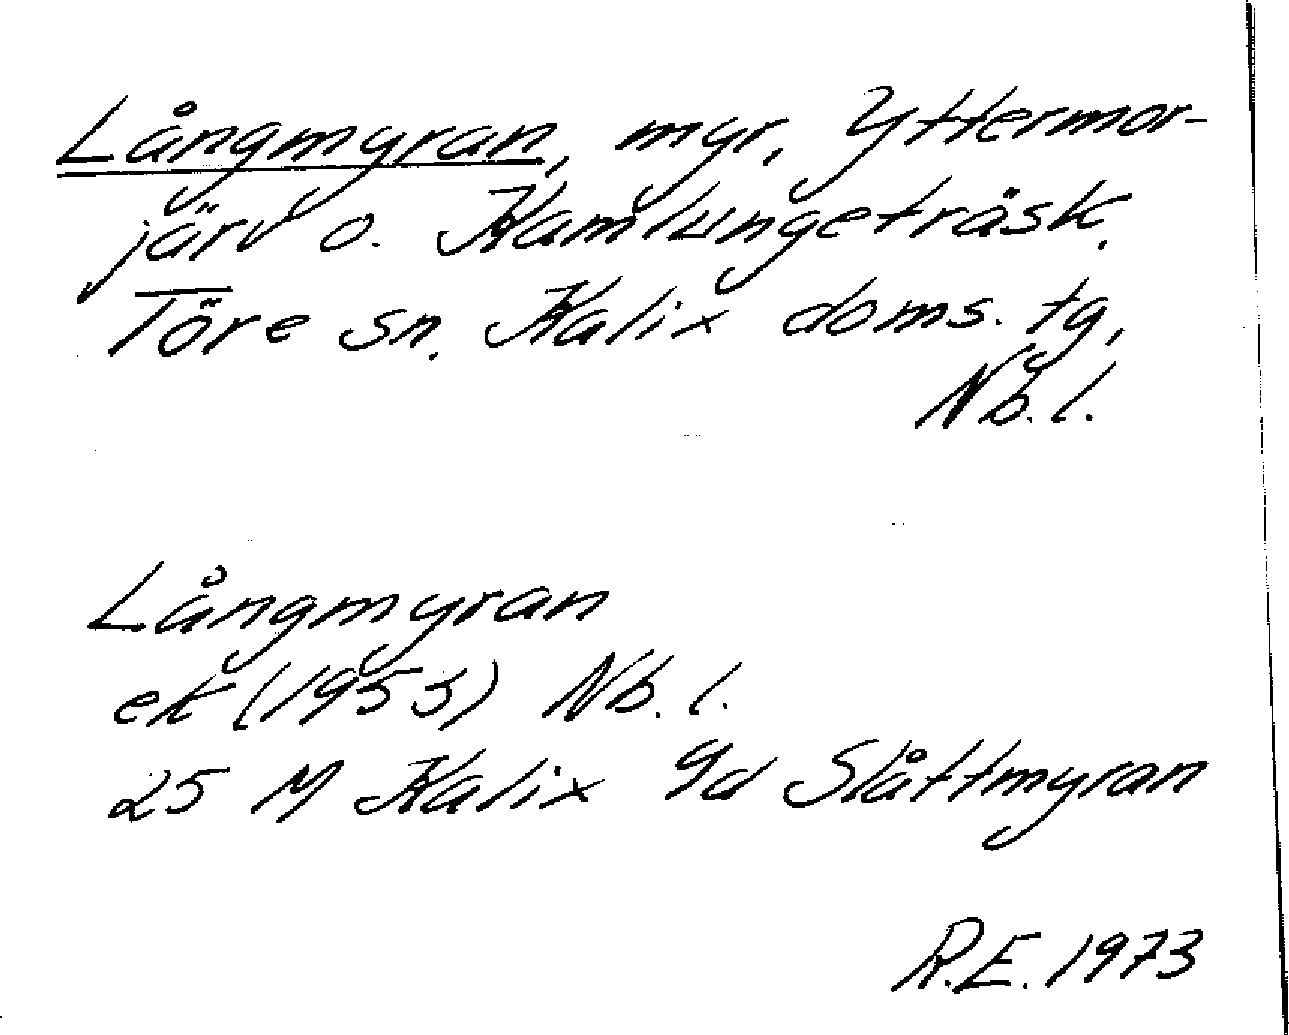 Långmyran, myr, Yttermor-
järv o. Kamlungeträsk,
Töre sn. Kalix doms. tg,
Nb.l.
Långmyran
ek (1953) Nb.l.
25 M Kalix 9d Slåttmyran
R.E. 1973